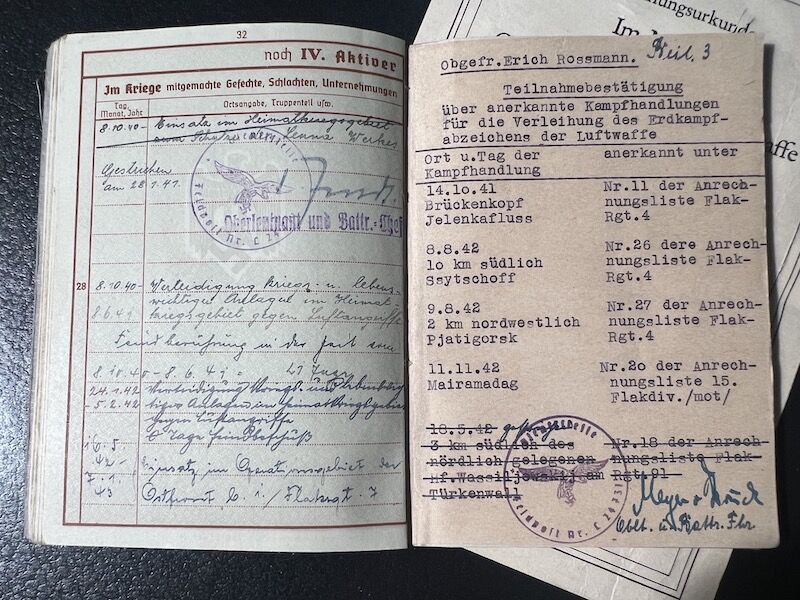 32
noch IV. Aktiver
Im Kriege mitgemachte Gefechte, Schlachten, Unternehmungen
Tag, Monat, Jahr
Ortsangabe, Truppenteil usw.
8.10.40- Einsatz im Heimatkriegsgebiet
zum Schutze der Leuna Werke
Gestrichen
am 28.1.41.
Dienststelle
Feldpost Nr. C 24
Oberleutnant und Battr.-Chef
28
8.10.40- Verteidigung kriegs- u. lebens-
wichtiger Anlagen im Heimat-
8.6.41 kriegsgebiet gegen Luftangriffe
Feindberührung in der Zeit vom
8.10.40 - 8.6.41 = 27 Tage
24.1.42 Verteidigung kriegs- und lebenswich-
-5.2.42 tiger Anlagen im Heimatkriegsgebiet
gegen Luftangriffe
6 Tage Feindbeschuß
16.5.
42- Einsatz im Operationsgebiet der
7.1.
43 Ostfront b. 1./Flakrgt. 7
Obgefr.Erich Rossmann. Beil. 3
Teilnahmebestätigung
über anerkannte Kampfhandlungen
für die Verleihung des Erdkampf-
abzeichens der Luftwaffe
Ort u.Tag der anerkannt unter
Kampfhandlung
14.10.41 Nr.11 der Anrech-
Brückenkopf nungsliste Flak-
Jelenkafluss Rgt.4
8.8.42 Nr.26 dere Anrech-
10 km südlich nungsliste Flak-
Ssytschoff Rgt.4
9.8.42 Nr.27 der Anrech-
2 km nordwestlich nungsliste Flak-
Pjatigorsk Rgt.4
11.11.42 Nr.20 der Anrech-
Mairamadag nungsliste 15.
Flakdiv./mot/
18.5.42
3 km südlich des Nr.18 der Anrech-
nördlich gelegenen nungsliste Flak-
Hf.Wassiljewskij am Rgt.91
Türkenwall
Dienststelle
Feldpost Nr. C 24731
Oblt. u. Battr. Fhr
nungsurkunde
Im